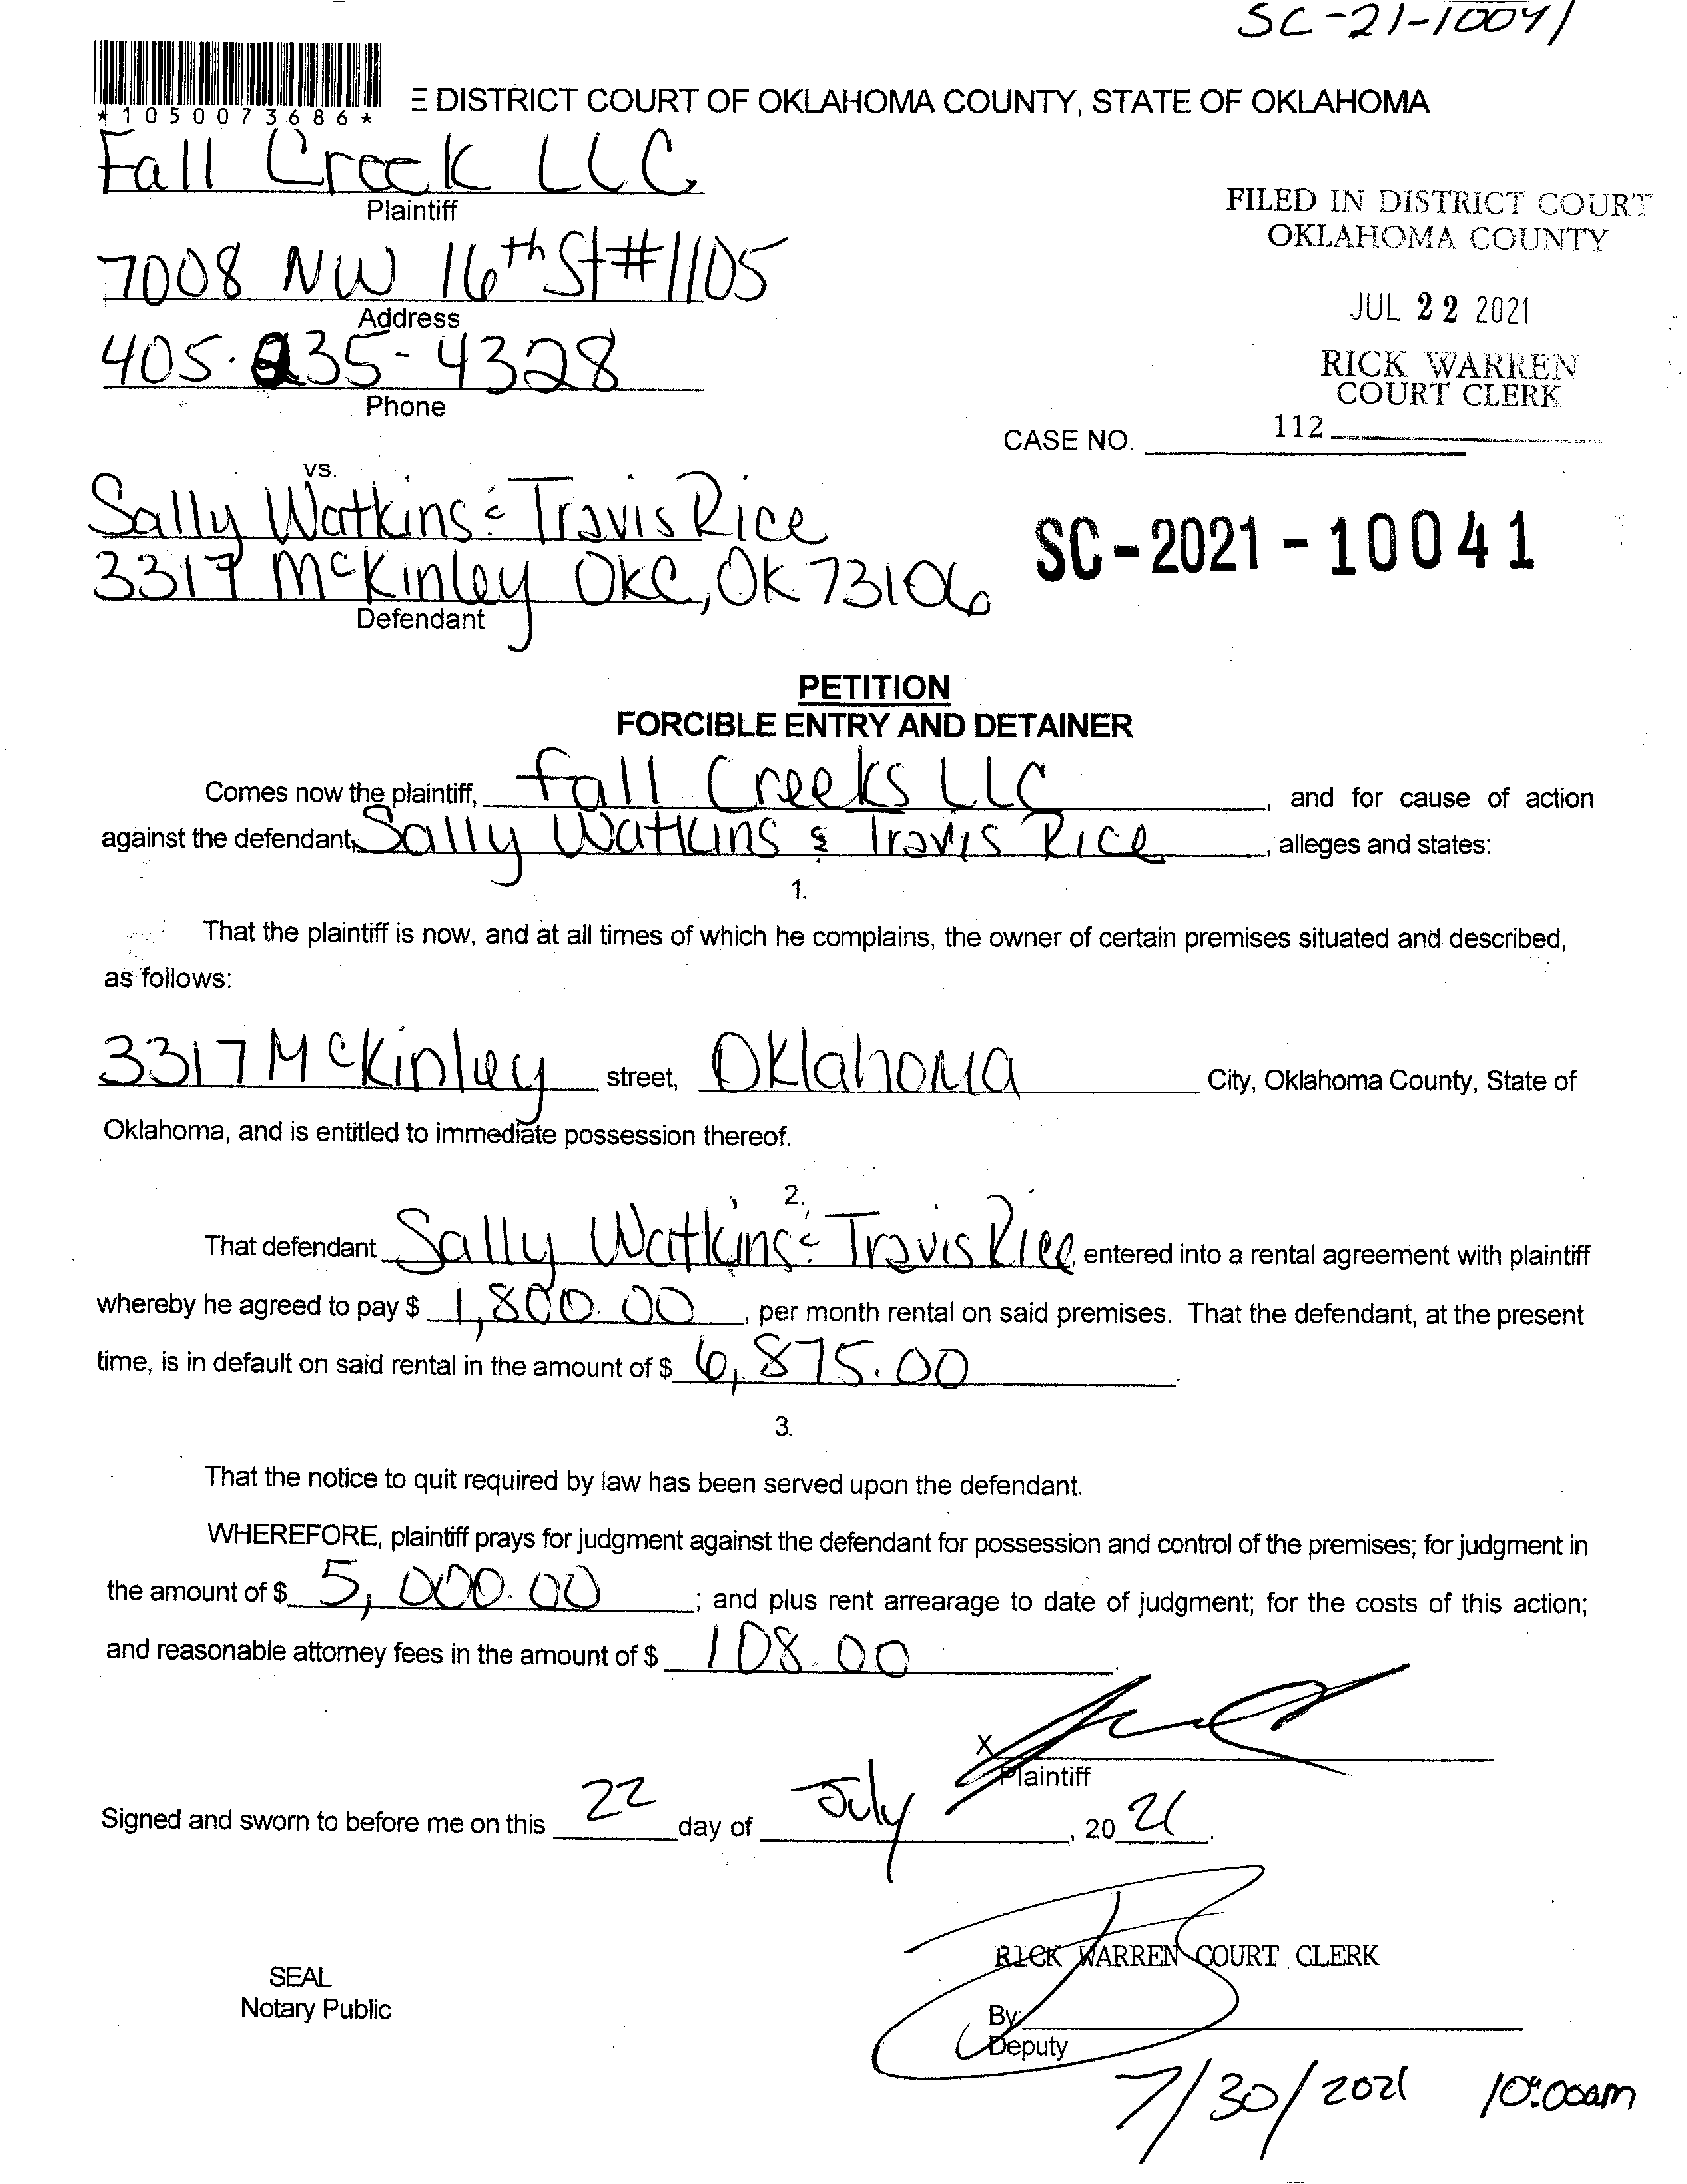 SC-21-10041
*1050073686*
E DISTRICT COURT OF OKLAHOMA COUNTY, STATE OF OKLAHOMA
Fall Creek LLC
Plaintiff
FILED IN DISTRICT COURT
OKLAHOMA COUNTY
7008 NW 16th St #1105
Address
JUL 22 2021
405-235-4328
Phone
RICK WARREN
COURT CLERK
CASE NO. 112
vs.
Sally Watkins & Travis Rice
3317 McKinley OKC, OK 73106
Defendant
SC-2021-10041
PETITION
FORCIBLE ENTRY AND DETAINER
Comes now the plaintiff, Fall Creeks LLC, and for cause of action
against the defendant, Sally Watkins & Travis Rice, alleges and states:
1.
That the plaintiff is now, and at all times of which he complains, the owner of certain premises situated and described,
as follows:
3317 McKinley street, Oklahoma City, Oklahoma County, State of
Oklahoma, and is entitled to immediate possession thereof.
2.
That defendant Sally Watkins & Travis Rice, entered into a rental agreement with plaintiff
whereby he agreed to pay $ 1,800.00, per month rental on said premises. That the defendant, at the present
time, is in default on said rental in the amount of $ 6,875.00.
3.
That the notice to quit required by law has been served upon the defendant.
WHEREFORE, plaintiff prays for judgment against the defendant for possession and control of the premises; for judgment in
the amount of $ 5,000.00; and plus rent arrearage to date of judgment; for the costs of this action;
and reasonable attorney fees in the amount of $ 108.00
X
Plaintiff
Signed and sworn to before me on this 22 day of July, 2021.
RICK WARREN COURT CLERK
SEAL
Notary Public
By:
Deputy
7/30/2021 10:00am